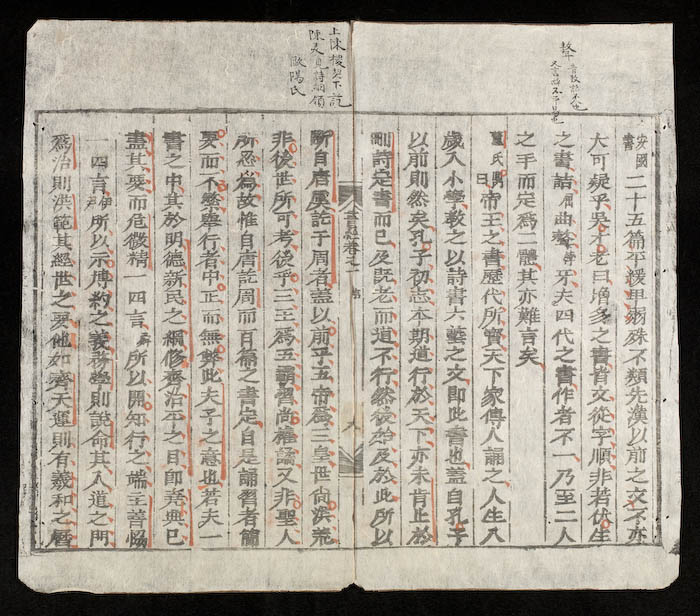 聱
安國書二十五篇平緩卑弱殊不類先漢以前之文不亦
大可疑乎吳才老曰增多之書皆文從字順非若伏生
之書詰屈曲聱牙夫四代之書作者不一乃至二人
之手而定爲二體其亦難言矣
董氏鼎曰帝王之書歷代所寶天下家傳人誦之人生八
歲入小學教之以詩書六藝之文即此書也蓋自孔子
以前則然矣孔子初志本期道行於天下亦未肯止於
刪詩定書而已及既老而道不行然後始及於此所以
卷之一 序 八
歐陽氏
斷自唐虞訖于周者蓋以前乎五帝爲三皇世尚洪荒
非後世所可考後乎三王爲五霸習尚權譎又非聖人
所忍爲故惟自唐訖周而百篇之書定自是誦習者簡
要而不繁舉行者中正而無弊此夫子之意也若夫一
書之中其於明德新民之綱修齊治平之目即堯典已
盡其要而危微精一四言舜所以開知行之端主善協
一四言伊尹所以示博約之義務學則說命其入道之門
爲治則洪範其經世之要他如齊天運則有羲和之曆